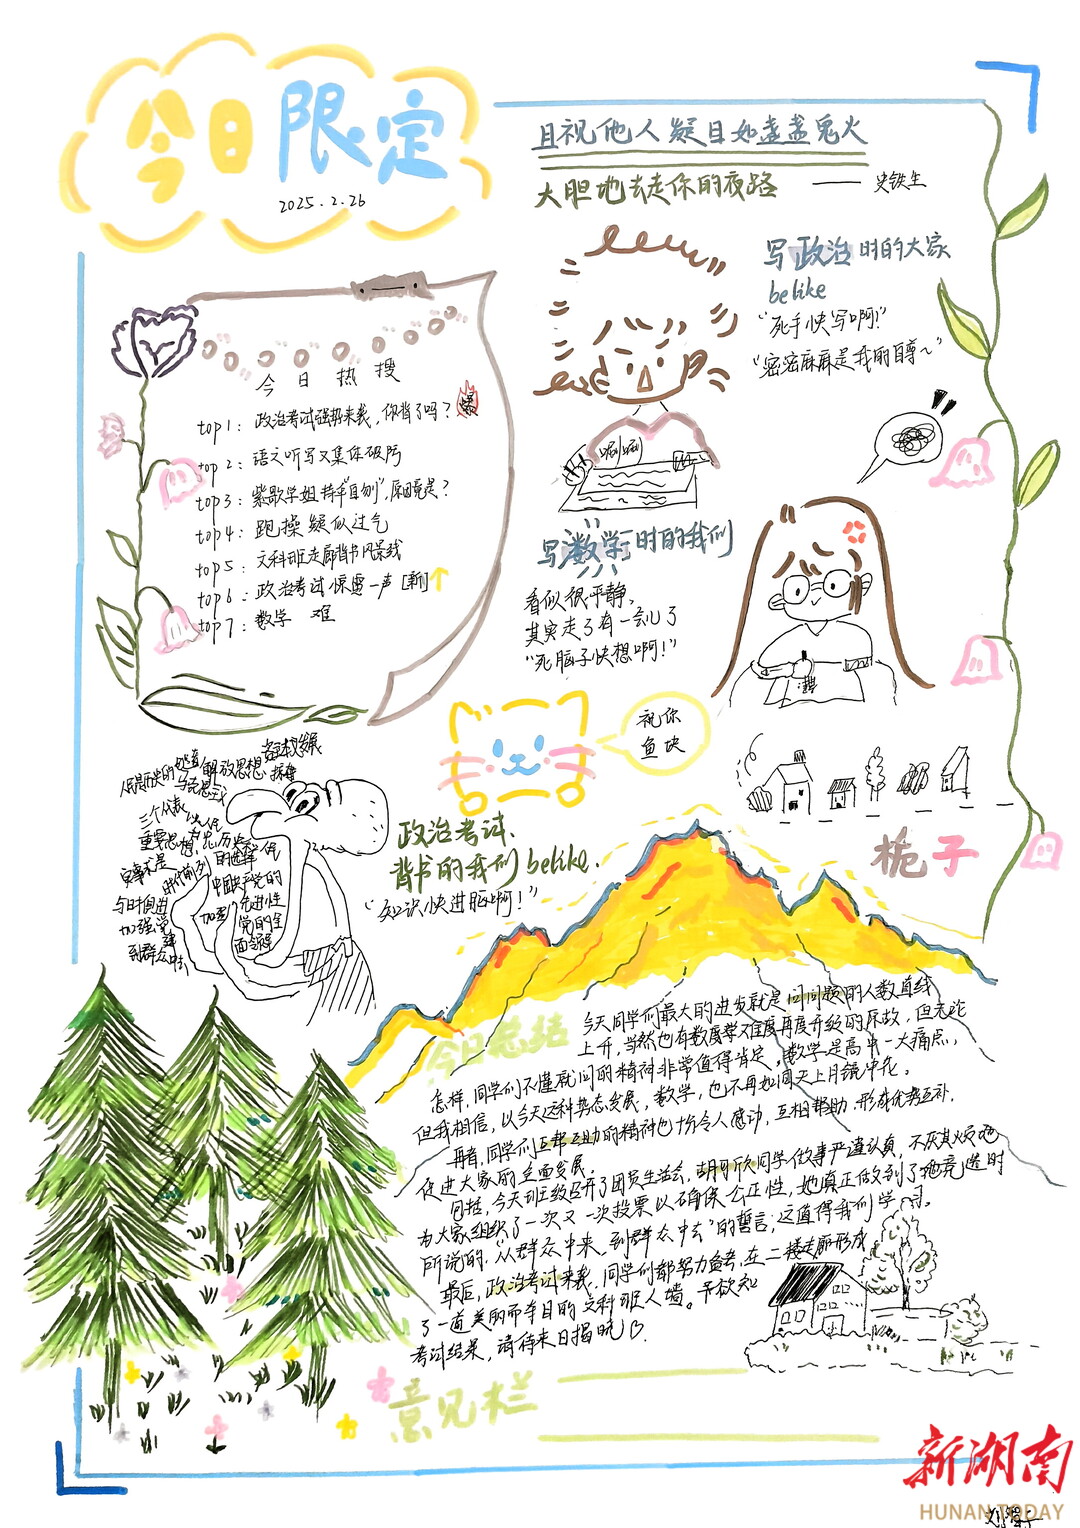 今日限定
2025.2.26
且视他人疑目如盏盏鬼火
大胆地去走你的夜路 —— 史铁生
今日热搜
top1: 政治考试强势来袭,你背了吗?爆
top2: 语文听写又集体破防
top3: 紫歌学姐持半自刎",原因竟是?
top4: 跑操疑似过气
top5: 文科班走廊背书风景线
top6: 政治考试惊雷一声[新]
top7: 数学 难
写政治时的大家
belike
"死手快写啊!"
"密密麻麻是我的自尊~"
唰唰
写数学时的我们
看似很平静,
其实走了有一会儿了
"死脑子快想啊!"
祝你
鱼块
政治考试、
背书的我们belike.
"知识快进脑啊!"
解放思想
马克思主义
三个代表
重要思想
实事求是
的选择
与时俱进
中国共产党的
先进性
加强党
党的全
面领导
到群众中去
栀子
今日总结
今天同学们最大的进步就是问问题的人数直线
上升,当然也有数学难度再度升级的原故,但无论
怎样,同学们不懂就问的精神非常值得肯定,数学是高中一大痛点,
但我相信,以今天这种势态发展,数学,也不再如同天上月镜中花。
再者,同学们互帮互助的精神也十分令人感动,互相帮助,形成优势互补,
促进大家的全面发展。
包括,今天班级召开了团员生活会,胡可欣同学做事严谨认真,不厌其烦地
为大家组织了一次又一次投票以确保公正性,她真正做到了她竞选时
所说的"从群众中来,到群众中去"的誓言,这值得我们学习。
最后,政治考试来袭,同学们都努力备考,在二楼走廊形成
了一道美丽而夺目的文科班人墙。予欲知
考试结果,请待来日揭晓♡.
意见栏
新湖南
HUNAN TODAY